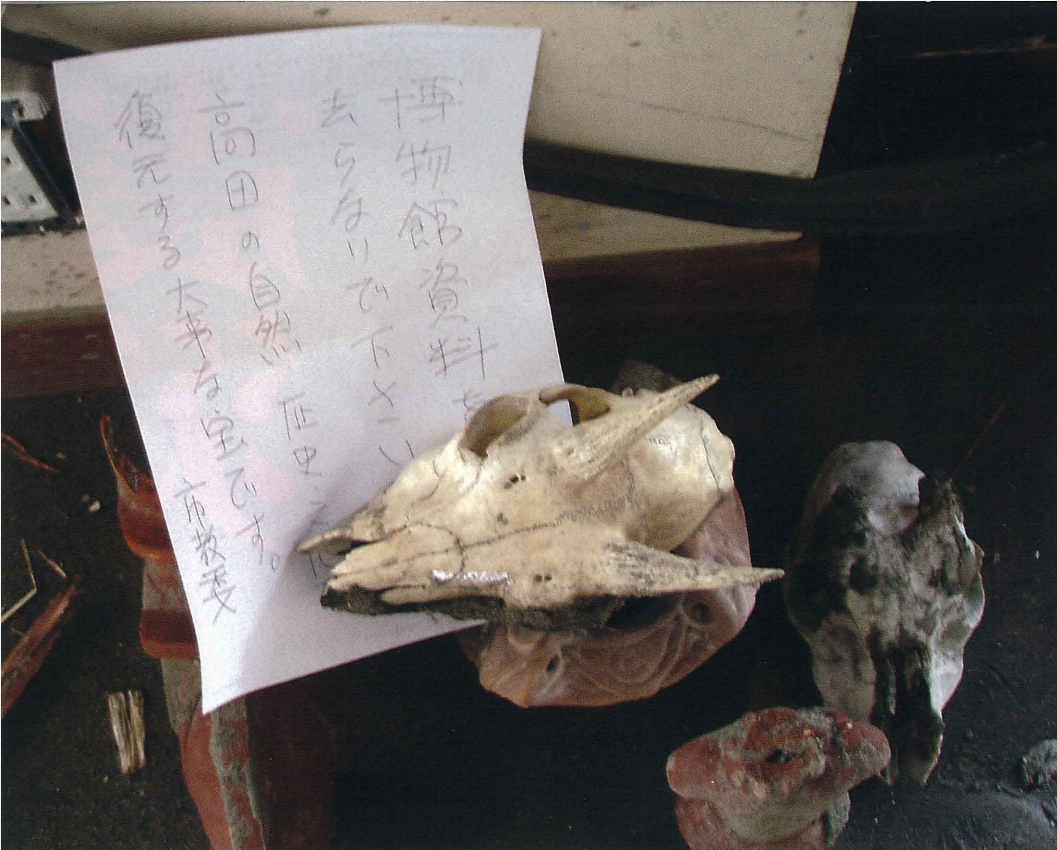 博物館資料を
去らないで下さい
高田の自然 歴史
復元する大事な宝です。 市教委